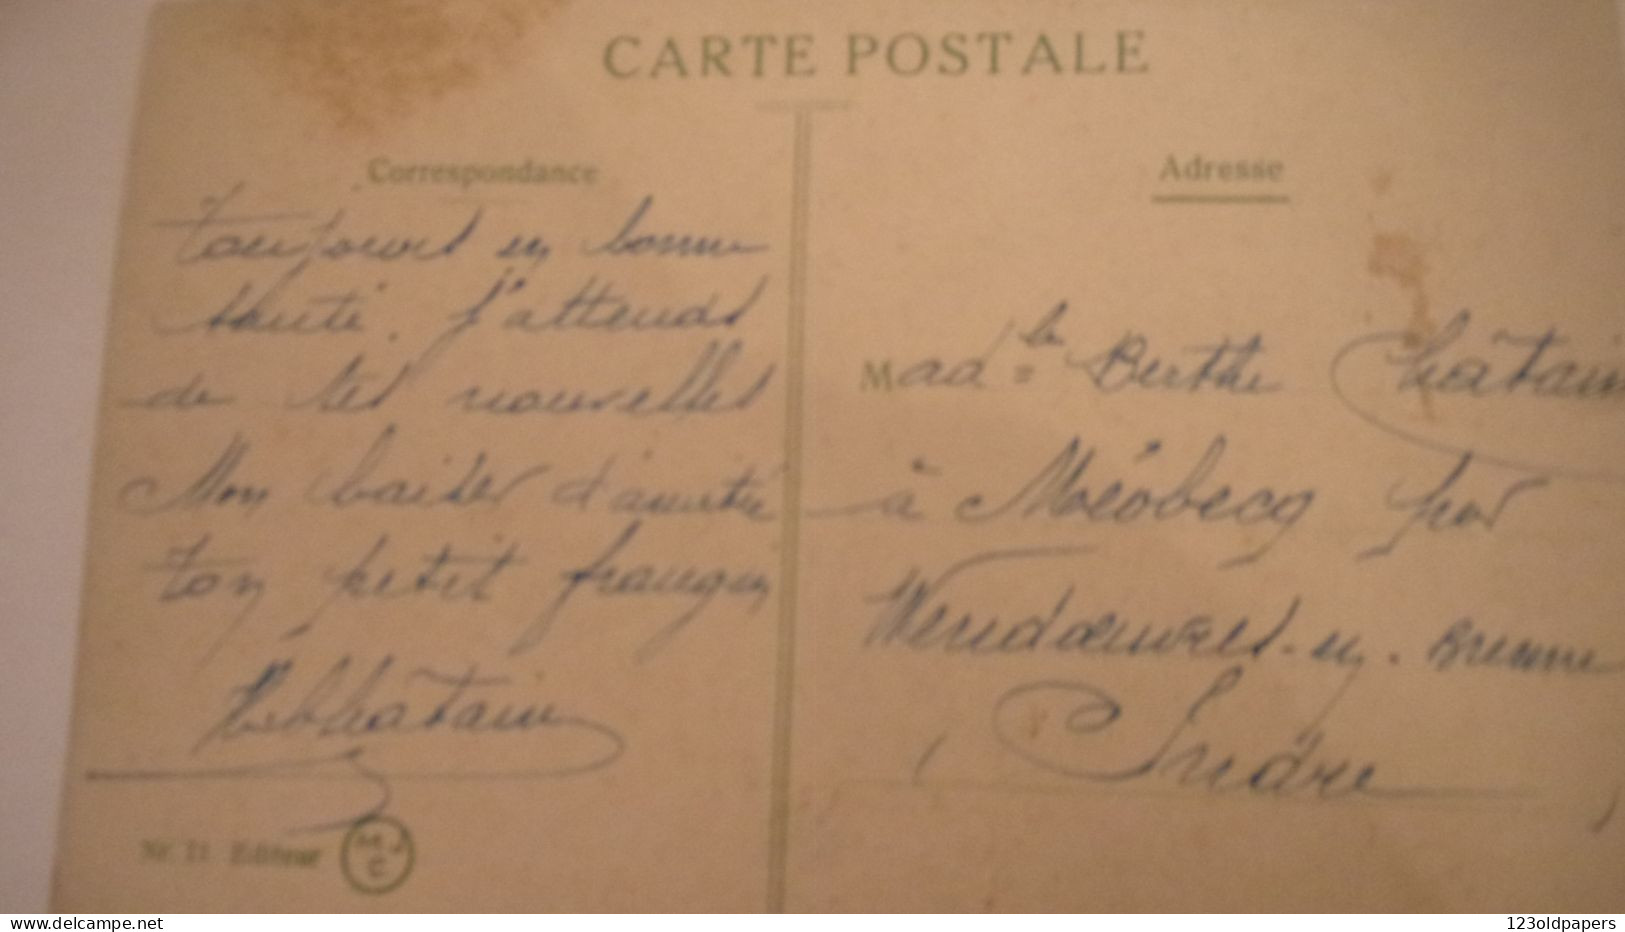 CARTE POSTALE
Correspondance
Toujours en bonne
santé. J'attends
de tes nouvelles
Mon baiser d'amitié
ton petit frangin
Châtain
Adresse
Madlle Berthe Châtain
à Méobecq par
Vendoeuvres-en-Brenne
(Indre)
Editeur
www.delcampe.net
123oldpapers